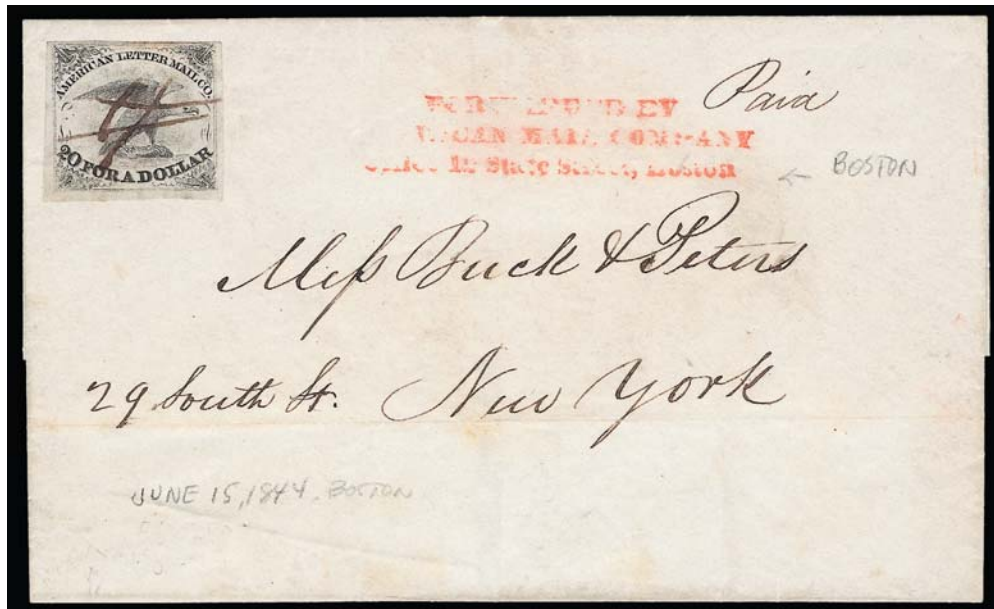 AMERICAN LETTER MAIL CO.
20 FOR A DOLLAR
Paid
MAIL COMPANY
State Street, Boston
← BOSTON
Mess Buck & Peters
29 South St. New York
JUNE 15, 1844. BOSTON